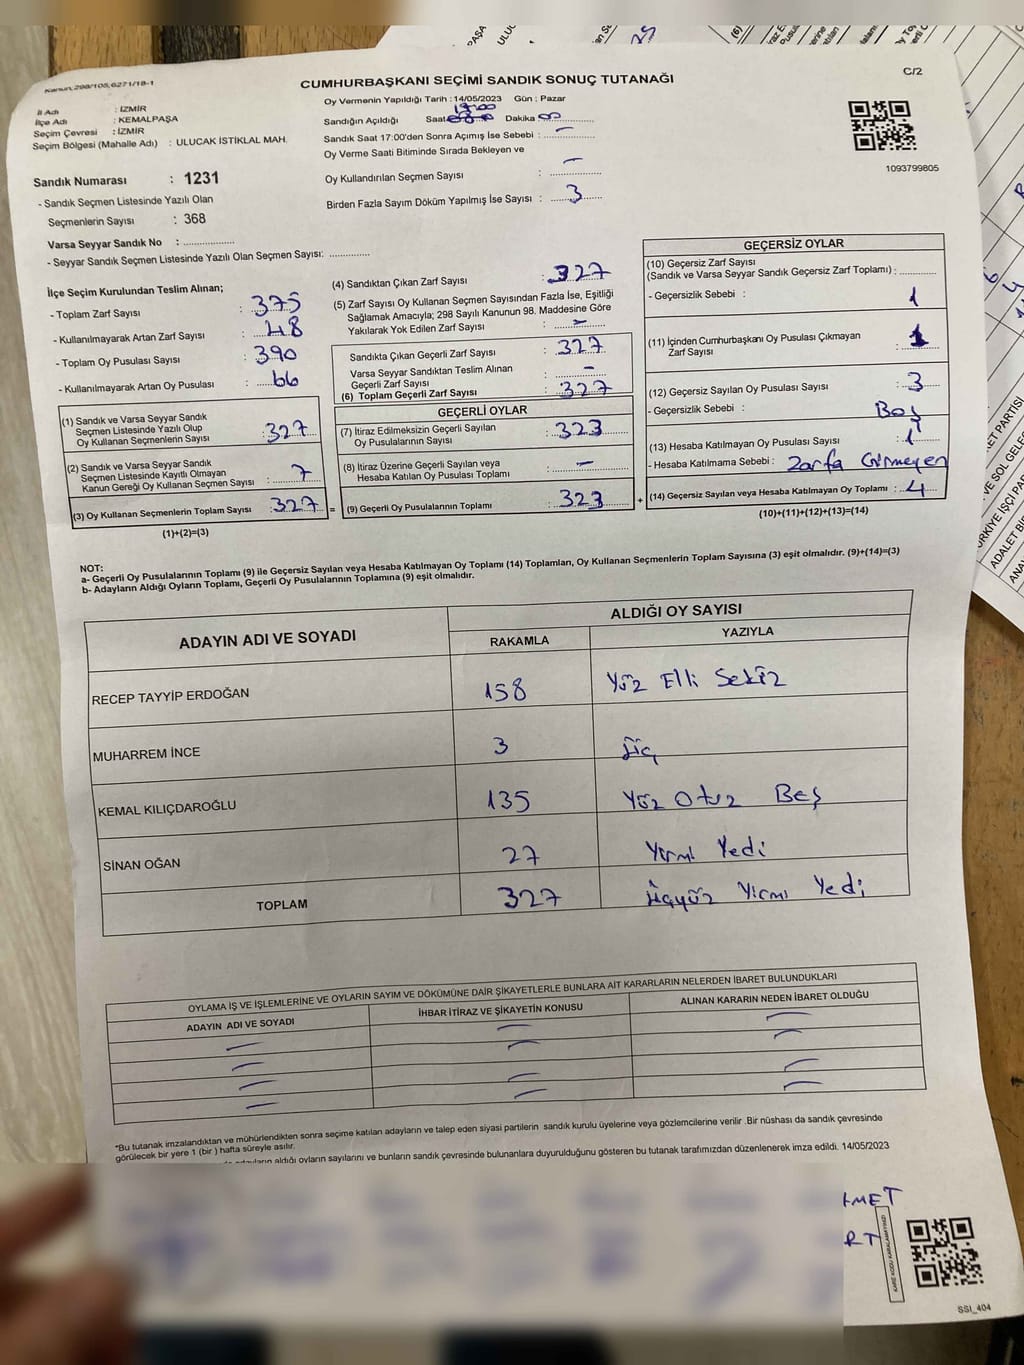 Kanun, 298/105,6271/18-1
CUMHURBAŞKANI SEÇİMİ SANDIK SONUÇ TUTANAĞI
C/2
İl Adı : İZMİR
İlçe Adı : KEMALPAŞA
Seçim Çevresi : İZMİR
Seçim Bölgesi (Mahalle Adı) : ULUCAK İSTİKLAL MAH.
Oy Vermenin Yapıldığı Tarih : 14/05/2023 Gün : Pazar
Sandığın Açıldığı Saat Dakika 00
Sandık Saat 17:00'den Sonra Açımış İse Sebebi : —
Oy Verme Saati Bitiminde Sırada Bekleyen ve
Oy Kullandırılan Seçmen Sayısı : —
Birden Fazla Sayım Döküm Yapılmış İse Sayısı : 3
1093799805
Sandık Numarası : 1231
- Sandık Seçmen Listesinde Yazılı Olan
Seçmenlerin Sayısı : 368
Varsa Seyyar Sandık No : ..................
- Seyyar Sandık Seçmen Listesinde Yazılı Olan Seçmen Sayısı: ..............
İlçe Seçim Kurulundan Teslim Alınan;
- Toplam Zarf Sayısı : 375
- Kullanılmayarak Artan Zarf Sayısı : 48
- Toplam Oy Pusulası Sayısı : 390
- Kullanılmayarak Artan Oy Pusulası : 66
(1) Sandık ve Varsa Seyyar Sandık
Seçmen Listesinde Yazılı Olup
Oy Kullanan Seçmenlerin Sayısı : 327
(2) Sandık ve Varsa Seyyar Sandık
Seçmen Listesinde Kayıtlı Olmayan
Kanun Gereği Oy Kullanan Seçmen Sayısı : 7
(3) Oy Kullanan Seçmenlerin Toplam Sayısı : 327 =
(1)+(2)=(3)
(4) Sandıktan Çıkan Zarf Sayısı : 327
(5) Zarf Sayısı Oy Kullanan Seçmen Sayısından Fazla İse, Eşitliği
Sağlamak Amacıyla; 298 Sayılı Kanunun 98. Maddesine Göre
Yakılarak Yok Edilen Zarf Sayısı : —
Sandıkta Çıkan Geçerli Zarf Sayısı : 327
Varsa Seyyar Sandıktan Teslim Alınan
Geçerli Zarf Sayısı : —
(6) Toplam Geçerli Zarf Sayısı : 327
GEÇERLİ OYLAR
(7) İtiraz Edilmeksizin Geçerli Sayılan
Oy Pusulalarının Sayısı : 323
(8) İtiraz Üzerine Geçerli Sayılan veya
Hesaba Katılan Oy Pusulası Toplamı : —
(9) Geçerli Oy Pusulalarının Toplamı : 323 +
GEÇERSİZ OYLAR
(10) Geçersiz Zarf Sayısı
(Sandık ve Varsa Seyyar Sandık Geçersiz Zarf Toplamı) : ............
- Geçersizlik Sebebi : 1
(11) İçinden Cumhurbaşkanı Oy Pusulası Çıkmayan
Zarf Sayısı : 1
(12) Geçersiz Sayılan Oy Pusulası Sayısı : 3
- Geçersizlik Sebebi : Boş
(13) Hesaba Katılmayan Oy Pusulası Sayısı : 1
- Hesaba Katılmama Sebebi : Zarfa Girmeyen
(14) Geçersiz Sayılan veya Hesaba Katılmayan Oy Toplamı : 4
(10)+(11)+(12)+(13)=(14)
NOT:
a- Geçerli Oy Pusulalarının Toplamı (9) ile Geçersiz Sayılan veya Hesaba Katılmayan Oy Toplamı (14) Toplamları, Oy Kullanan Seçmenlerin Toplam Sayısına (3) eşit olmalıdır. (9)+(14)=(3)
b- Adayların Aldığı Oyların Toplamı, Geçerli Oy Pusulalarının Toplamına (9) eşit olmalıdır.
ADAYIN ADI VE SOYADI ALDIĞI OY SAYISI
RAKAMLA YAZIYLA
RECEP TAYYİP ERDOĞAN 158 Yüz Elli Sekiz
MUHARREM İNCE 3 Üç
KEMAL KILIÇDAROĞLU 135 Yüz Otuz Beş
SİNAN OĞAN 27 Yirmi Yedi
TOPLAM 327 Üçyüz Yirmi Yedi
OYLAMA İŞ VE İŞLEMLERİNE VE OYLARIN SAYIM VE DÖKÜMÜNE DAİR ŞİKAYETLERLE BUNLARA AİT KARARLARIN NELERDEN İBARET BULUNDUKLARI
ADAYIN ADI VE SOYADI İHBAR İTİRAZ VE ŞİKAYETİN KONUSU ALINAN KARARIN NEDEN İBARET OLDUĞU
*Bu tutanak imzalandıktan ve mühürlendikten sonra seçime katılan adayların ve talep eden siyasi partilerin sandık kurulu üyelerine veya gözlemcilerine verilir .Bir nüshası da sandık çevresinde
görülecek bir yere 1 (bir ) hafta süreyle asılır.
aldığı oyların sayılarını ve bunların sandık çevresinde bulunanlara duyurulduğunu gösteren bu tutanak tarafımızdan düzenlenerek imza edildi. 14/05/2023
KARE KODU KARALAMAYINIZ!
SSI_404